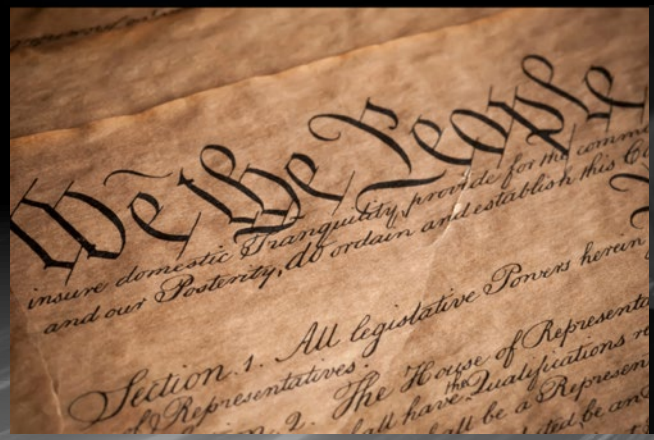 We the People
insure domestic Tranquility, provide for the
and our Posterity, do ordain and establish this
Section. 1. All legislative Powers herein
of Representatives.
2. The House of
the
have Qualifications
be a
be an